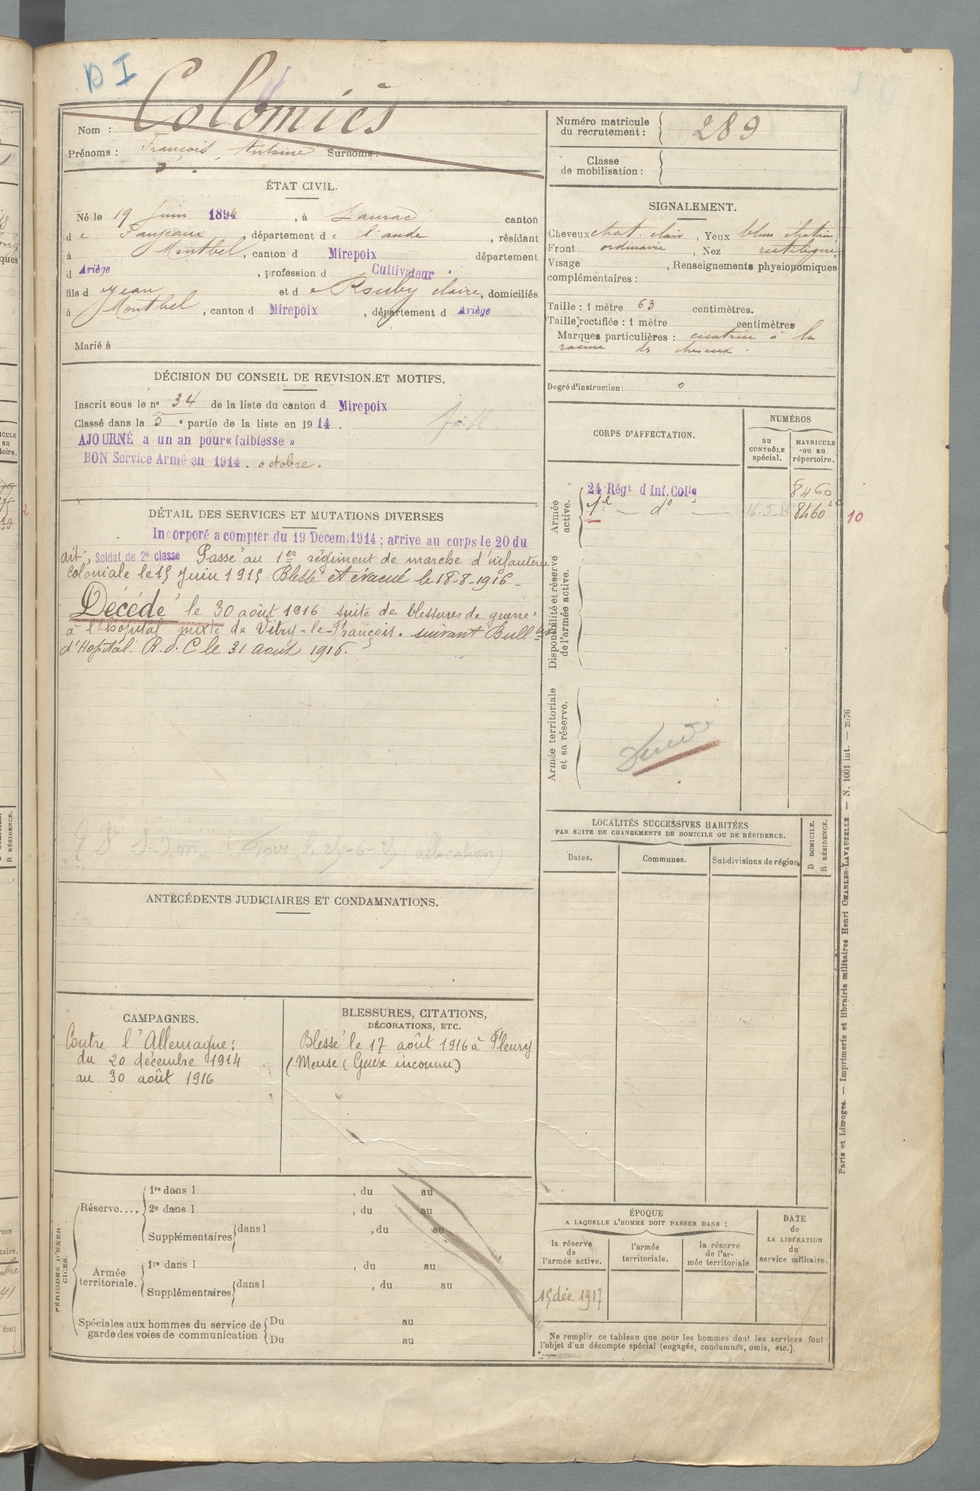 D I
Nom : Colomiès
Prénoms : François, Antoine Surnoms :
Numéro matricule du recrutement : 289
Classe de mobilisation :
ÉTAT CIVIL.
Né le 19 juin 1894, à Laurac canton
d e Fanjeaux département d e l'aude, résidant
à Montbel, canton d Mirepoix département
d Ariège, profession d Cultivateur
fils d e Jean et d e Rouby claire, domiciliés
à Montbel, canton d Mirepoix, département d Ariège
Marié à
SIGNALEMENT.
Cheveux chat. clair, Yeux bleu
Front ordinaire, Nez rectiligne
Visage , Renseignements physionomiques
complémentaires :
Taille : 1 mètre 63 centimètres.
Taille rectifiée : 1 mètre centimètres
Marques particulières : cicatrice à la
racine des cheveux.
Degré d'instruction : 0
DÉCISION DU CONSEIL DE REVISION ET MOTIFS.
Inscrit sous le n° 34 de la liste du canton d Mirepoix
Classé dans la 5 e partie de la liste en 19 14.
AJOURNÉ a un an pour « faiblesse »
BON Service Armé en 1914. octobre.
DÉTAIL DES SERVICES ET MUTATIONS DIVERSES
Incorporé a compter du 19 Décem. 1914 ; arrive au corps le 20 du
dit, Soldat de 2e classe Passé au 1er régiment de marche d'infanterie
coloniale le 15 Juin 1915 Blessé et évacué le 18-8-1916 -
Décédé le 30 août 1916 suite de blessures de guerre
à l'hôpital mixte de Vitry-le-François. suivant Bull
d'Hopital. R. d. C le 31 aout 1916.
CORPS D'AFFECTATION.
NUMÉROS
au CONTRÔLE spécial.
MATRICULE ou au répertoire.
Armée active.
24 Régt d Inf. Colle 8460
do 8460
10
Disponibilité et réserve de l'armée active.
Armée territoriale et sa réserve.
Décédé
LOCALITÉS SUCCESSIVES HABITÉES
PAR SUITE DE CHANGEMENTS DE DOMICILE OU DE RÉSIDENCE.
Dates.
Communes.
Subdivisions de région
D DOMICILE.
R RÉSIDENCE.
ANTÉCÉDENTS JUDICIAIRES ET CONDAMNATIONS.
CAMPAGNES.
Contre l'Allemagne :
du 20 décembre 1914
au 30 août 1916
BLESSURES, CITATIONS,
DÉCORATIONS, ETC.
Blessé le 17 août 1916 à Fleury
(Meuse ( Genre inconnu)
PÉRIODES D'EXERCICES.
Réserve.... 1re dans l , du au
2e dans l , du au
Supplémentaires dans l , du au
Armée territoriale. 1re dans l , du au
Supplémentaires dans l , du au
Spéciales aux hommes du service de garde des voies de communication Du au
Du au
ÉPOQUE
A LAQUELLE L'HOMME DOIT PASSER DANS :
la réserve de l'armée active.
l'armée territoriale.
la réserve de l'armée territoriale
DATE de LA LIBÉRATION du service militaire.
15 déc. 1917
Ne remplir ce tableau que pour les hommes dont les services font
l'objet d'un décompte spécial (engagés, condamnés, omis, etc.).
Paris et Limoges. — Imprimerie et librairie militaires Henri CHARLES-LAVAUZELLE. — N. 1001 int. —